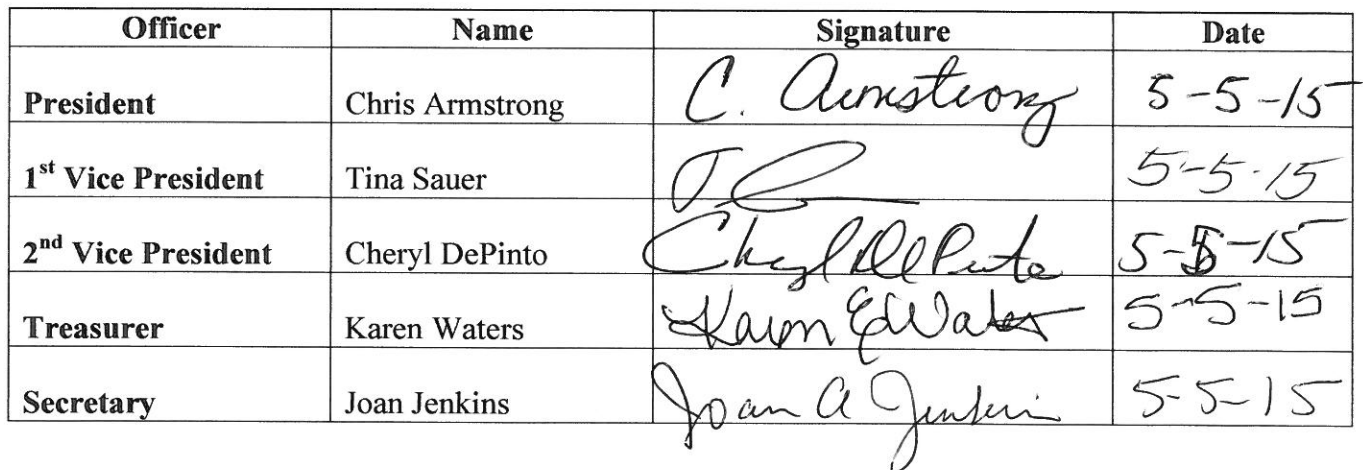 Officer Name Signature Date
President Chris Armstrong C. Armstrong 5-5-15
1st Vice President Tina Sauer 5-5-15
2nd Vice President Cheryl DePinto Cheryl DePinto 5-5-15
Treasurer Karen Waters Karen E Waters 5-5-15
Secretary Joan Jenkins Joan A Jenkins 5-5-15